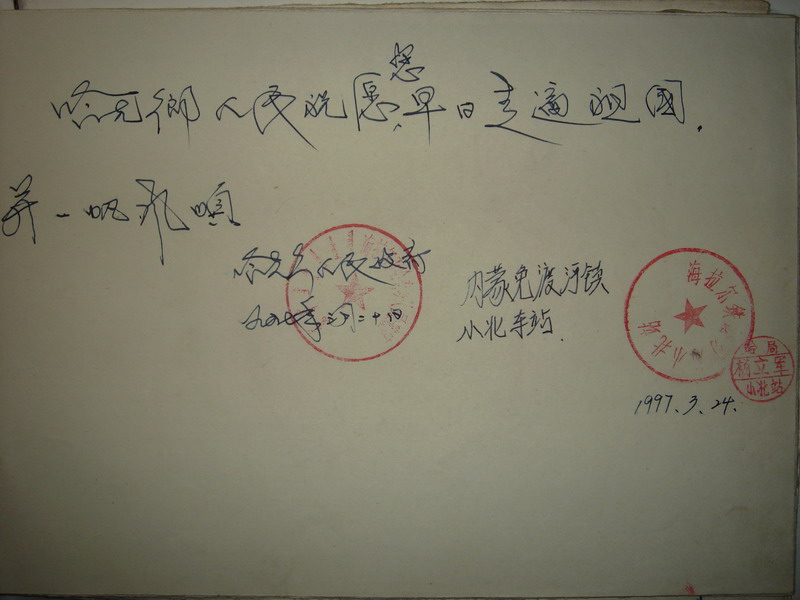 您
哈克乡人民祝愿早日走遍祖国.
并一帆风顺
哈克乡人民政府
九七年三月二十日
内蒙免渡河镇
小北车站.
1997.3.24.
海拉尔
小北站
哈局
杨立军
小北站